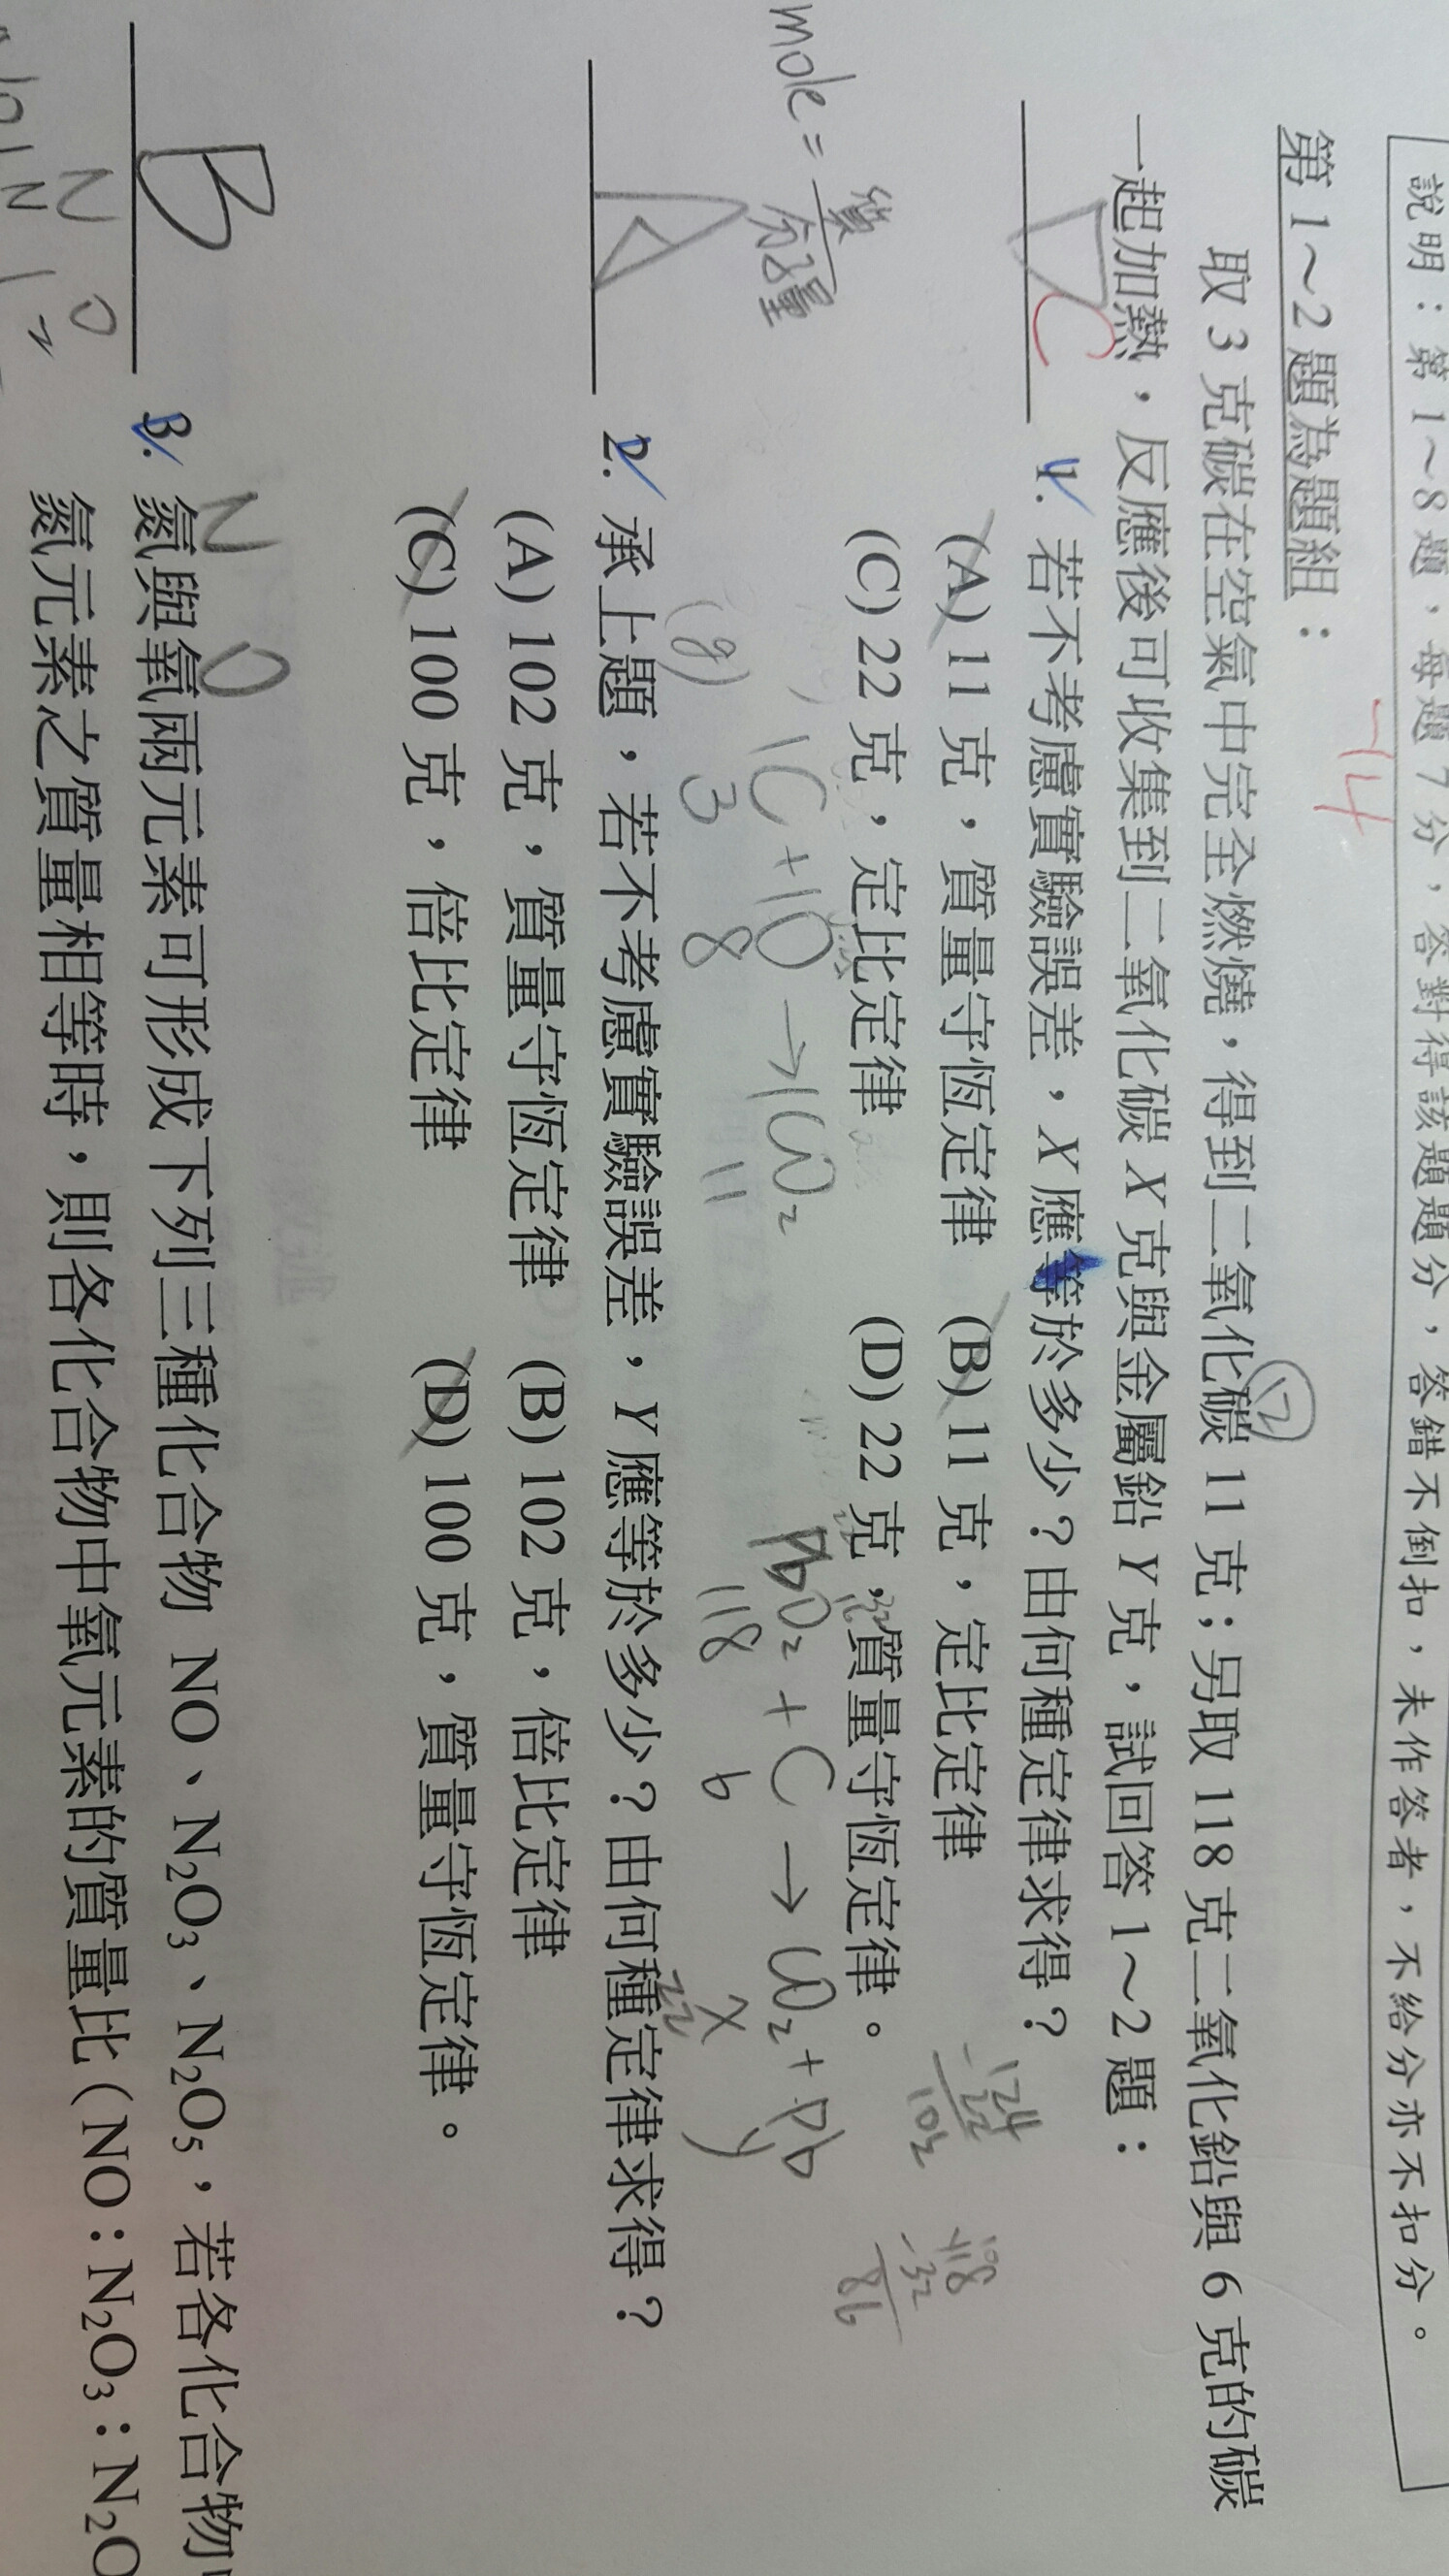 說明：第 1～8 題，每題 7 分，答對得該題題分，答錯不倒扣，未作答者，不給分亦不扣分。
-14
第 1～2 題為題組：
取 3 克碳在空氣中完全燃燒，得到二氧化碳 11 克；另取 118 克二氧化鉛與 6 克的碳
一起加熱，反應後可收集到二氧化碳 X 克與金屬鉛 Y 克，試回答 1～2 題：
D C 1. 若不考慮實驗誤差，X 應等於多少？由何種定律求得？
(A) 11 克，質量守恆定律 (B) 11 克，定比定律
(C) 22 克，定比定律 (D) 22 克，質量守恆定律。
124
-22
102
118
-32
86
mole = 質/分子量
1C + 1O → 1CO₂ PbO₂ + C → CO₂ + Pb
(g) 3 8 11 118 6 X y
22
A 2. 承上題，若不考慮實驗誤差，Y 應等於多少？由何種定律求得？
(A) 102 克，質量守恆定律 (B) 102 克，倍比定律
(C) 100 克，倍比定律 (D) 100 克，質量守恆定律。
N O
B 3. 氮與氧兩元素可形成下列三種化合物 NO、N₂O₃、N₂O₅，若各化合物
氮元素之質量相等時，則各化合物中氧元素的質量比（NO：N₂O₃：N₂O